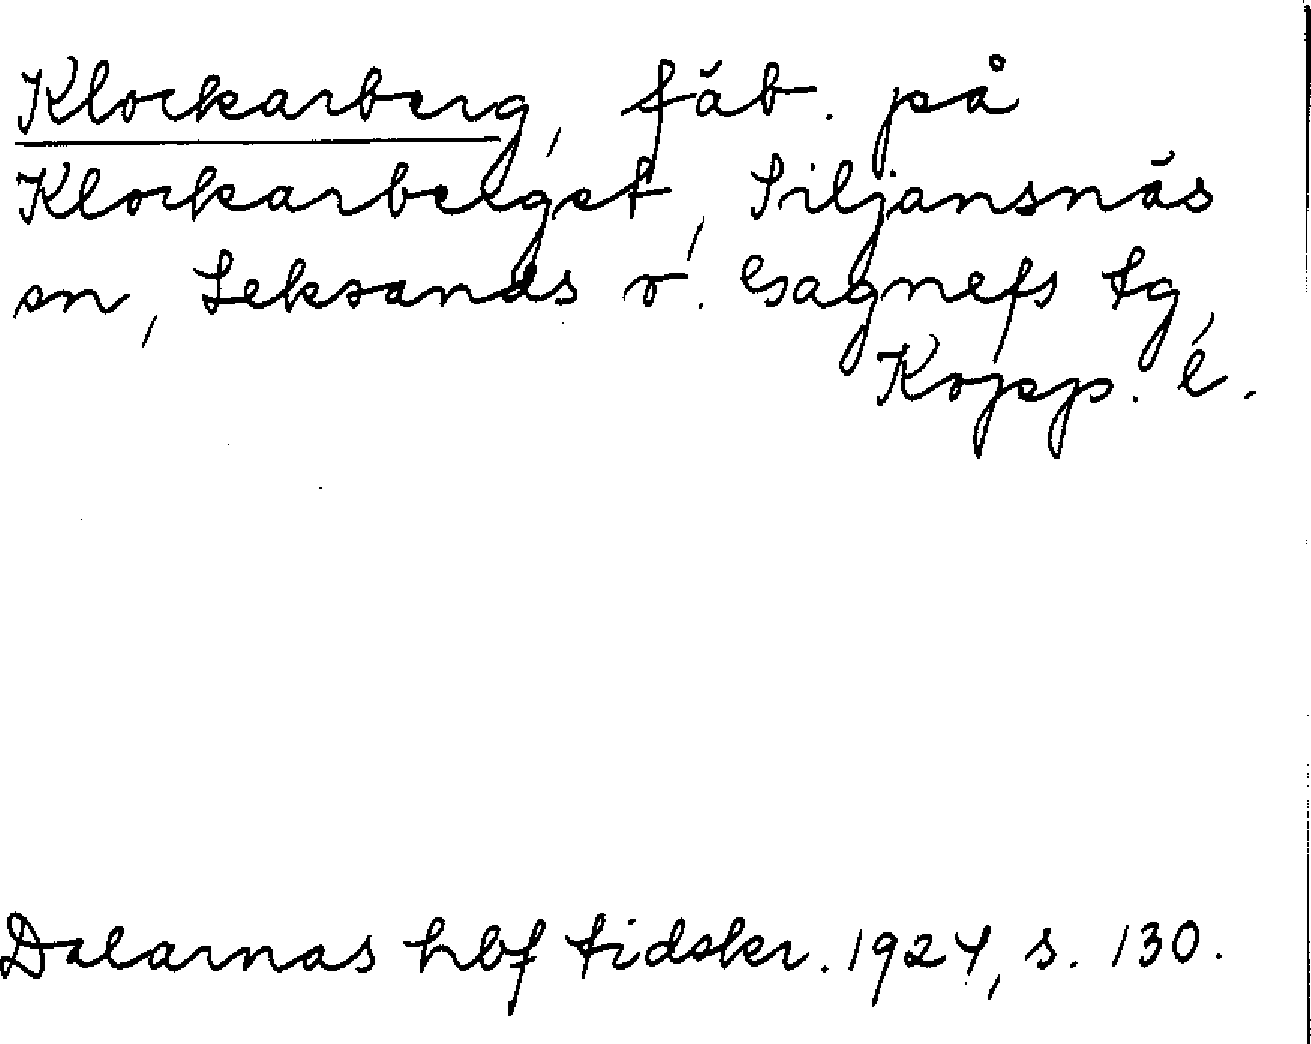 Klockarberg, fäb. på
Klockarberget, Siljansnäs
sn, Leksands o. Gagnefs tg,
Kopp. l.
Dalarnas hbf tidskr. 1924, s. 130.